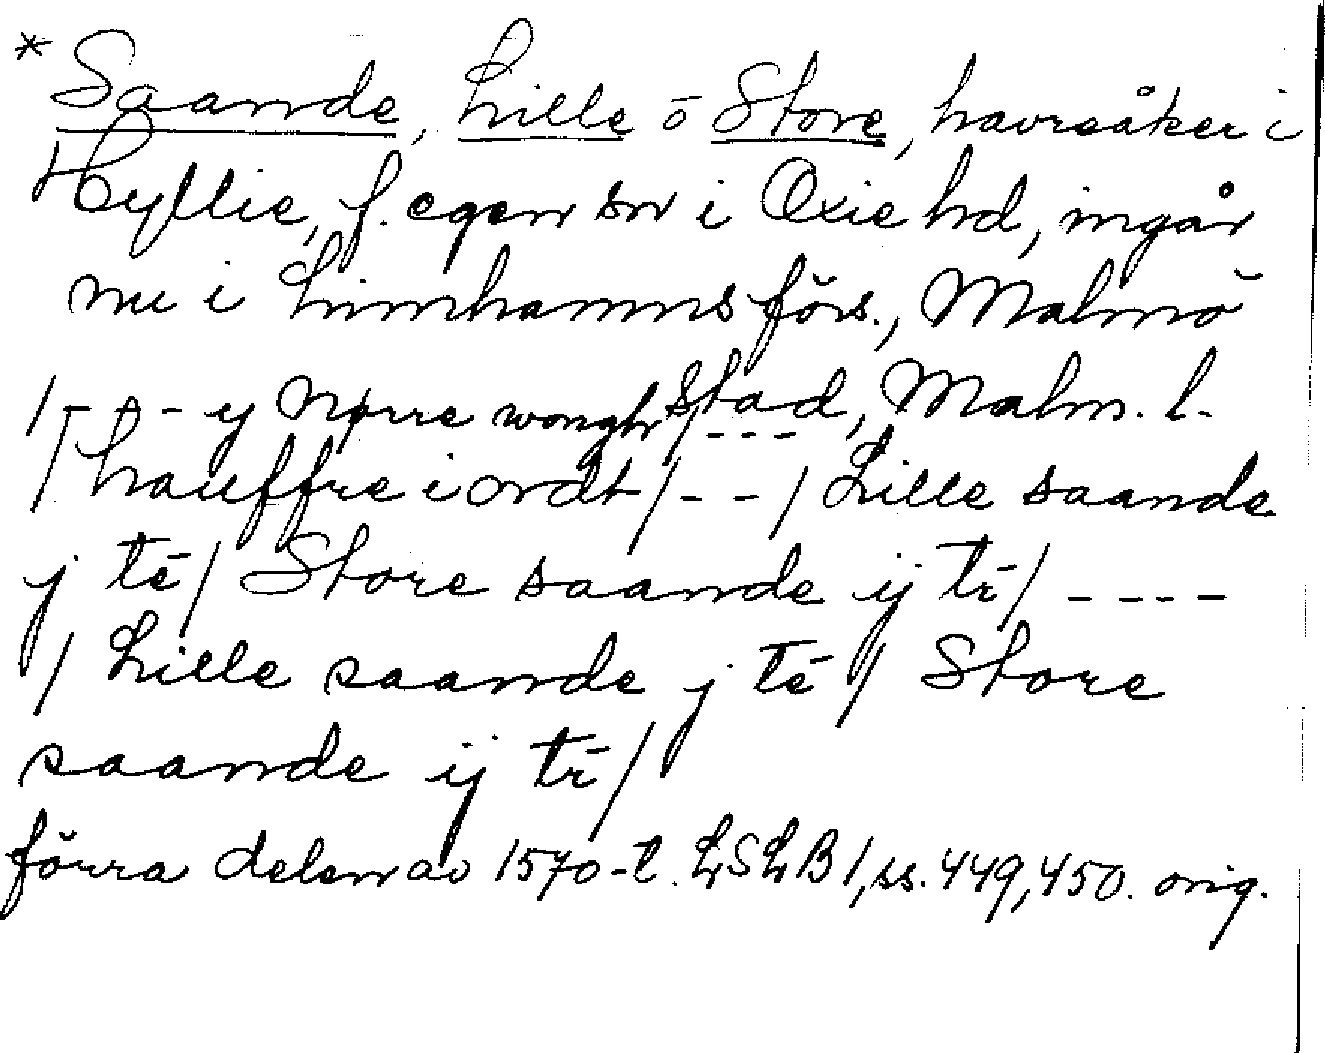 * Saande, Lille ō Store, havreåker i
Hyllie, f. egen sn i Oxie hd, ingår
nu i Limhamns förs., Malmö
stad, Malm. l.
/- - - y Nørre wongh /- - -
/ hauffre i ordt /- - / Lille saande
j tē / Store saande ij tr̄ / - - - -
/ Lille saande j tē / Store
saande ij tr̄ /
förra delen av 1570-t. LSLB 1, ss. 449, 450. orig.